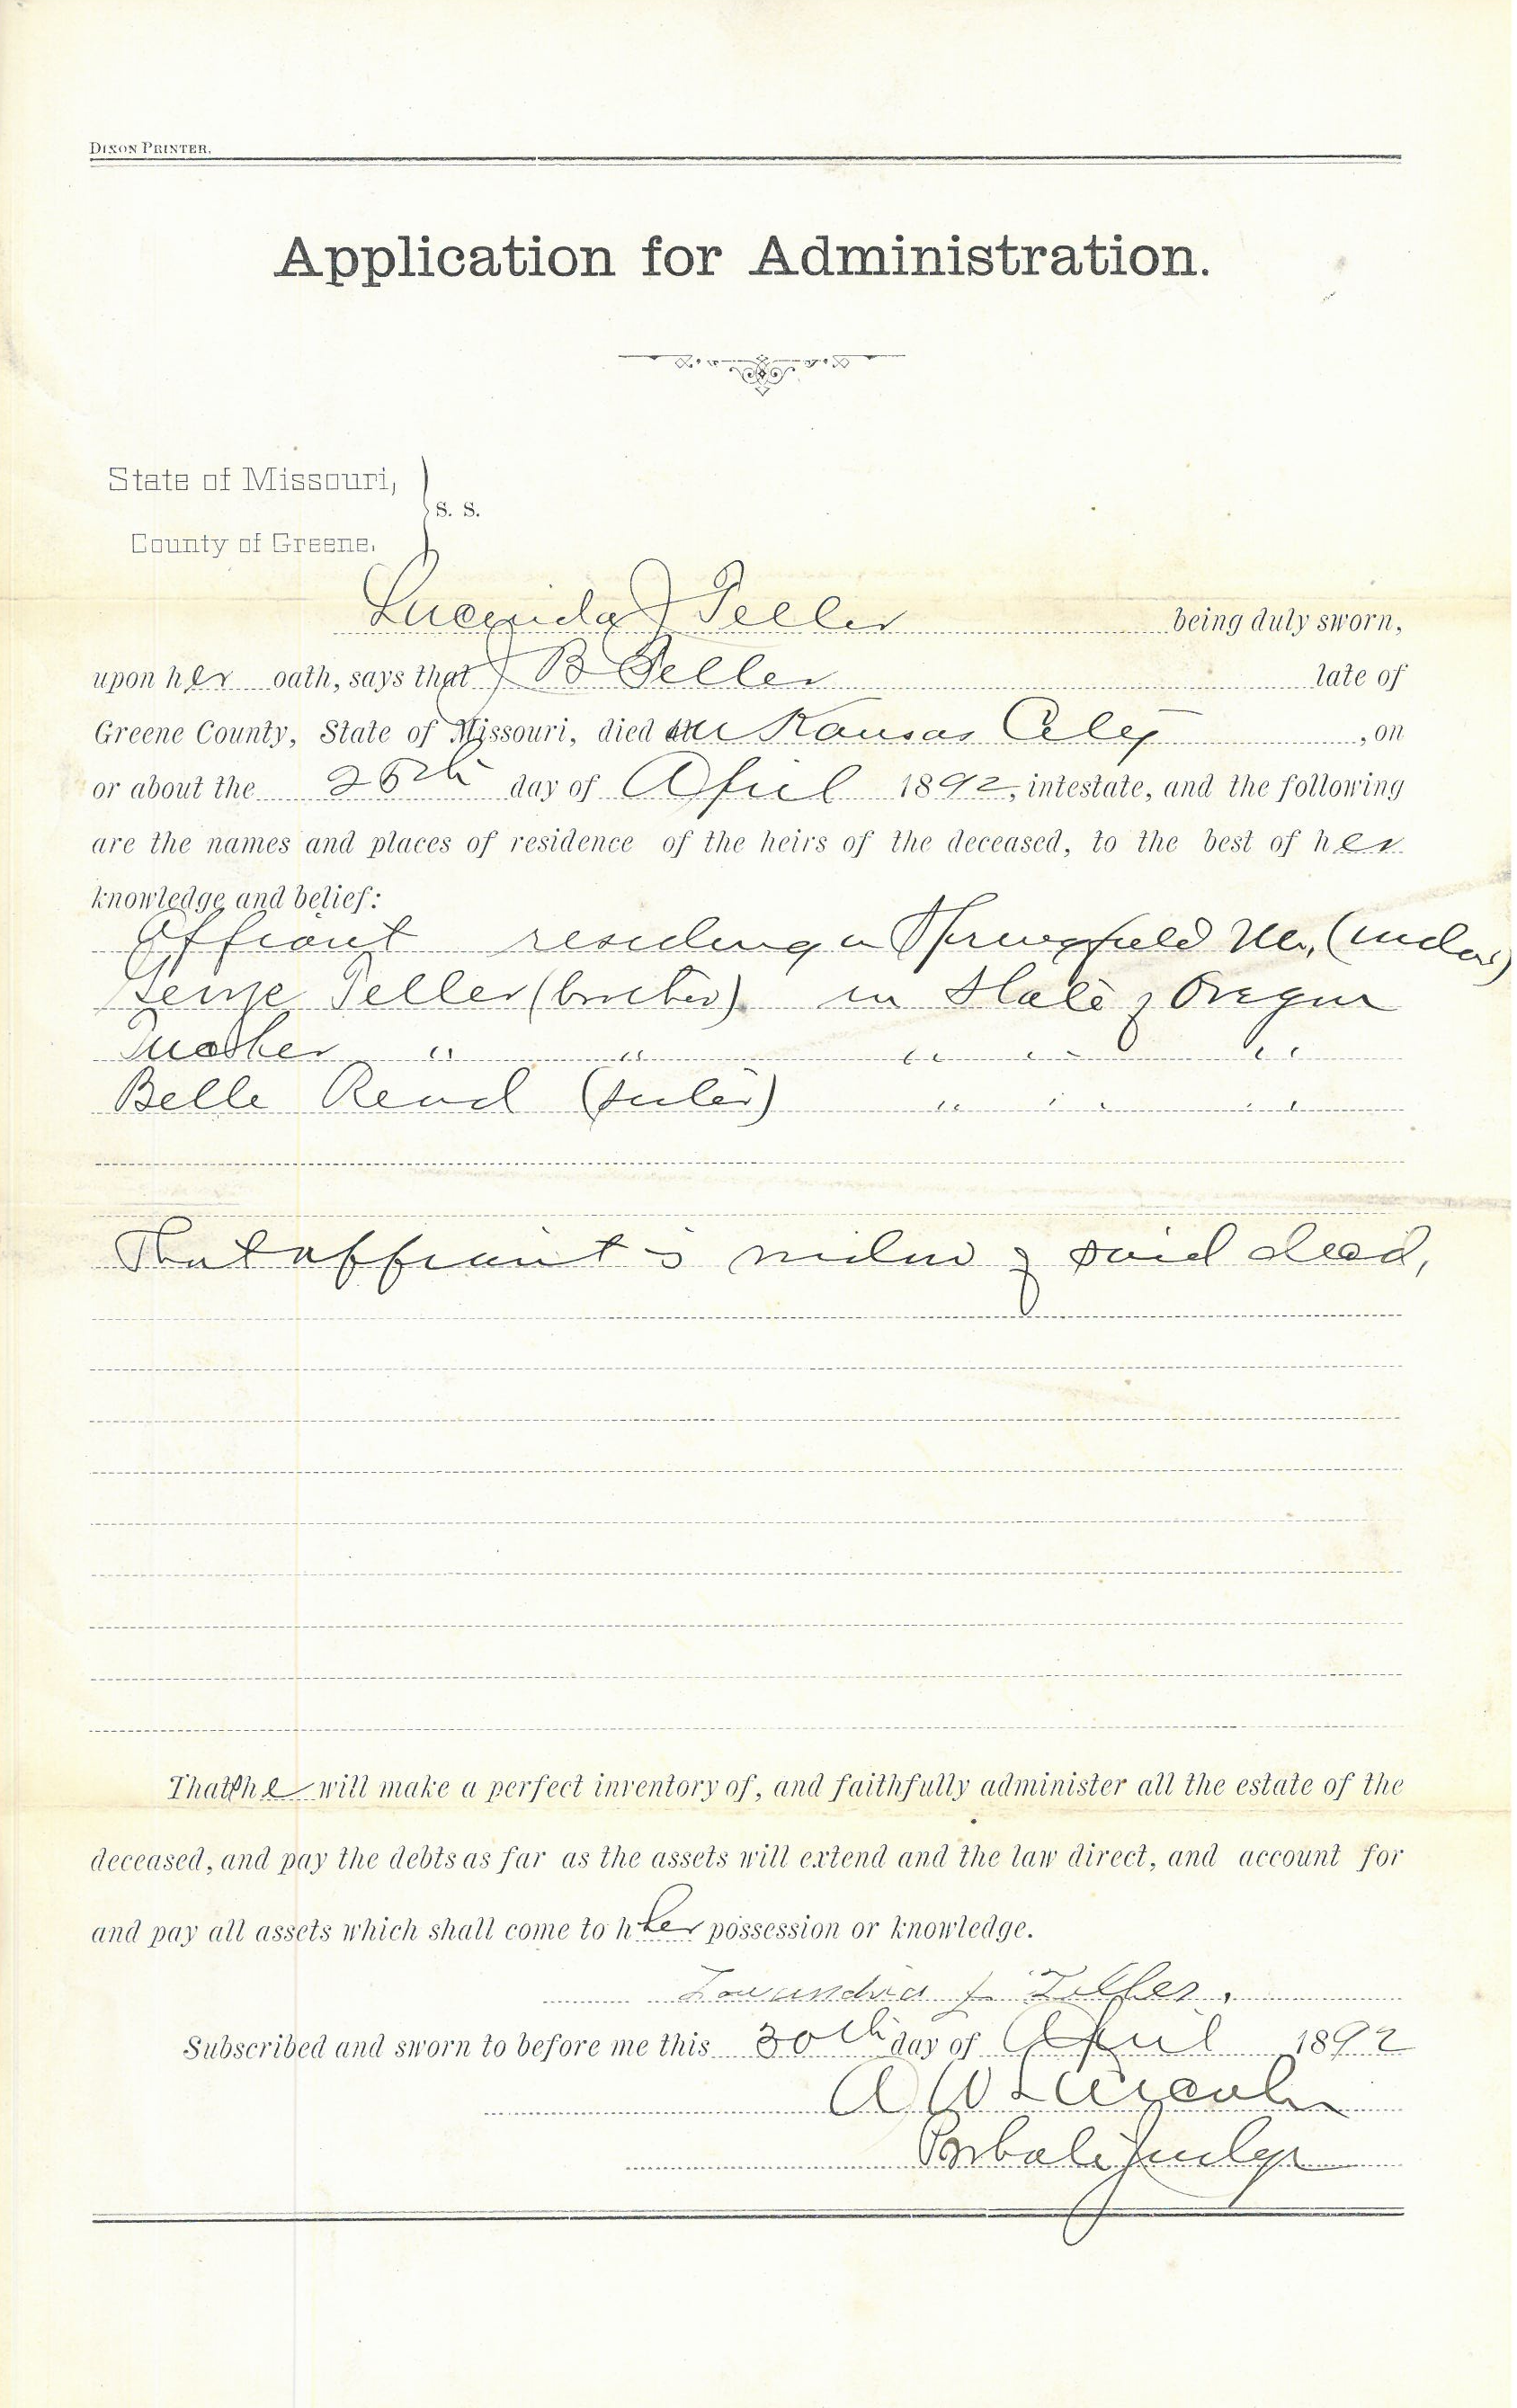 DIXON PRINTER.
Application for Administration.
State of Missouri,
S. S.
County of Greene.
Lucinda J Teller being duly sworn,
upon her oath, says that J B Teller late of
Greene County, State of Missouri, died in Kansas City, on
or about the 26th day of April 1892, intestate, and the following
are the names and places of residence of the heirs of the deceased, to the best of her
knowledge and belief:
Affiant residing in Springfield Mo, (widow)
George Teller (brother) in State of Oregon
" " " " "
Belle Read (sister) " " "
That affiant is widow of said decd,
That she will make a perfect inventory of, and faithfully administer all the estate of the
deceased, and pay the debts as far as the assets will extend and the law direct, and account for
and pay all assets which shall come to h her possession or knowledge.
J. Teller.
Subscribed and sworn to before me this 30th day of April 1892
A W Lincoln
Probate Judge